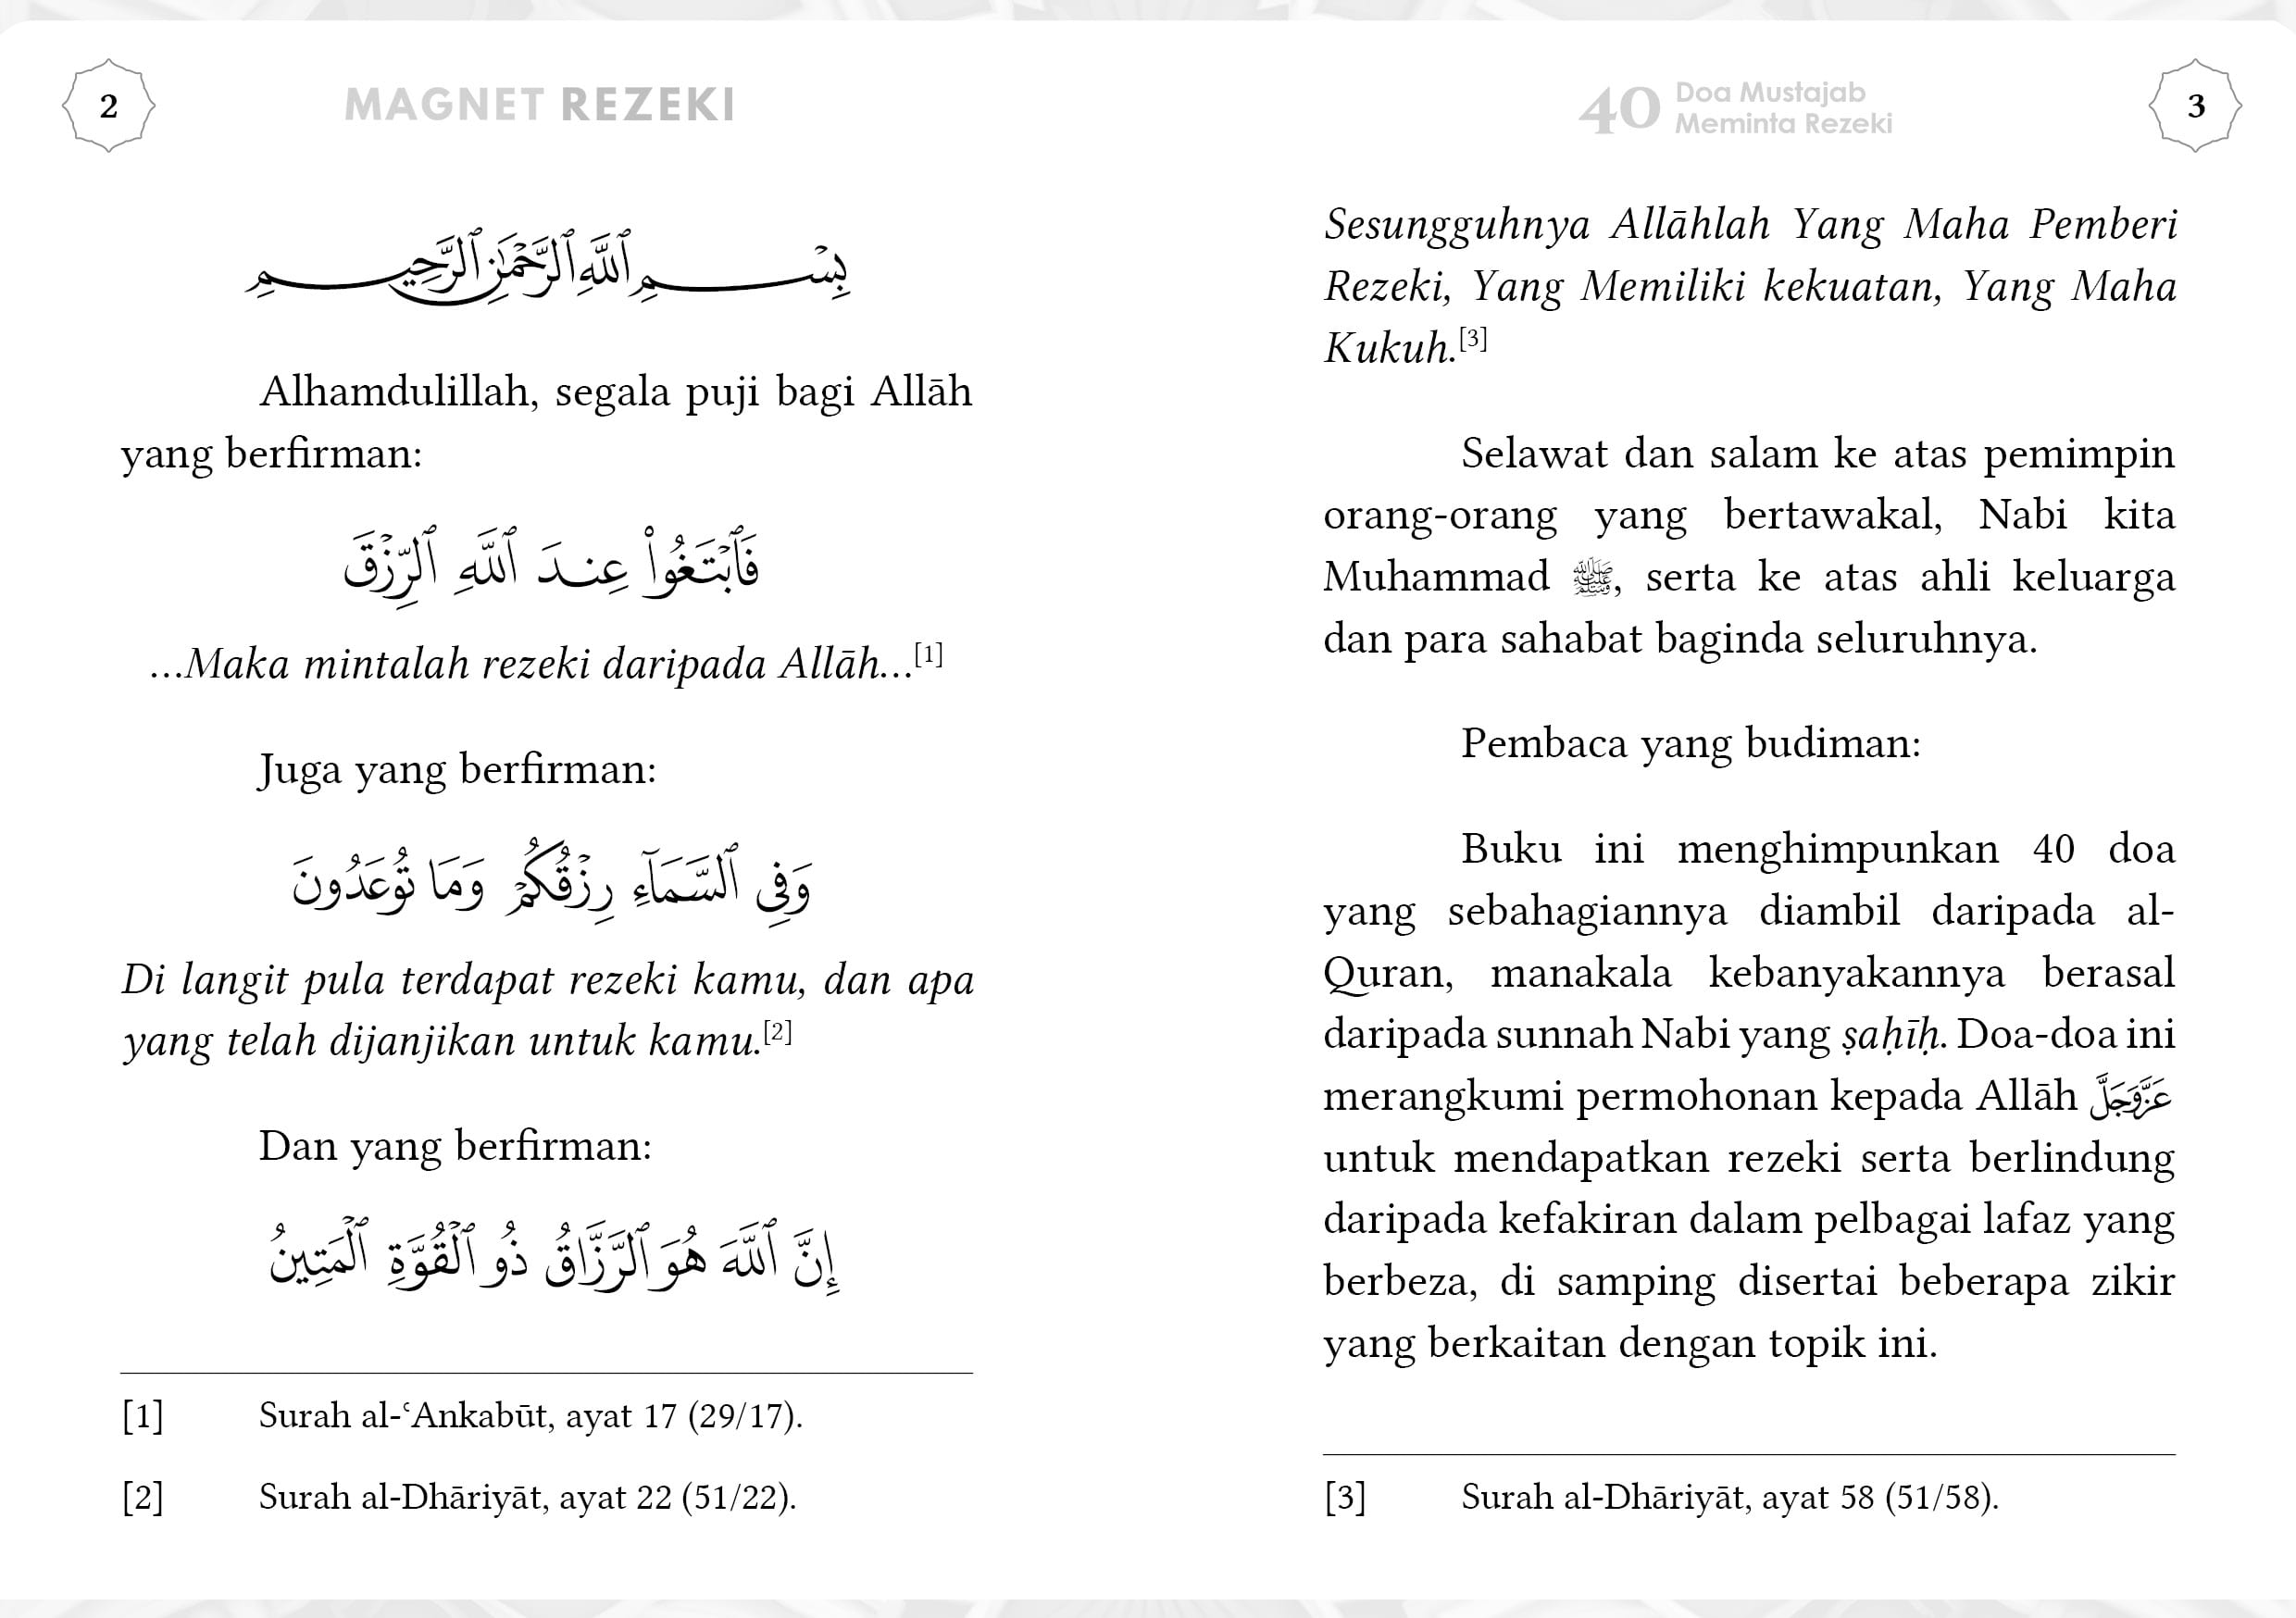 2
MAGNET REZEKI
بِسْمِ ٱللَّهِ ٱلرَّحْمَٰنِ ٱلرَّحِيمِ
Alhamdulillah, segala puji bagi Allāh
yang berfirman:
فَٱبْتَغُوا۟ عِندَ ٱللَّهِ ٱلرِّزْقَ
...Maka mintalah rezeki daripada Allāh...[1]
Juga yang berfirman:
وَفِى ٱلسَّمَآءِ رِزْقُكُمْ وَمَا تُوعَدُونَ
Di langit pula terdapat rezeki kamu, dan apa
yang telah dijanjikan untuk kamu.[2]
Dan yang berfirman:
إِنَّ ٱللَّهَ هُوَ ٱلرَّزَّاقُ ذُو ٱلْقُوَّةِ ٱلْمَتِينُ
[1] Surah al-ʿAnkabūt, ayat 17 (29/17).
[2] Surah al-Dhāriyāt, ayat 22 (51/22).
40 Doa Mustajab
Meminta Rezeki
3
Sesungguhnya Allāhlah Yang Maha Pemberi
Rezeki, Yang Memiliki kekuatan, Yang Maha
Kukuh.[3]
Selawat dan salam ke atas pemimpin
orang-orang yang bertawakal, Nabi kita
Muhammad ﷺ, serta ke atas ahli keluarga
dan para sahabat baginda seluruhnya.
Pembaca yang budiman:
Buku ini menghimpunkan 40 doa
yang sebahagiannya diambil daripada al-
Quran, manakala kebanyakannya berasal
daripada sunnah Nabi yang ṣaḥīḥ. Doa-doa ini
merangkumi permohonan kepada Allāh عَزَّوَجَلَّ
untuk mendapatkan rezeki serta berlindung
daripada kefakiran dalam pelbagai lafaz yang
berbeza, di samping disertai beberapa zikir
yang berkaitan dengan topik ini.
[3] Surah al-Dhāriyāt, ayat 58 (51/58).